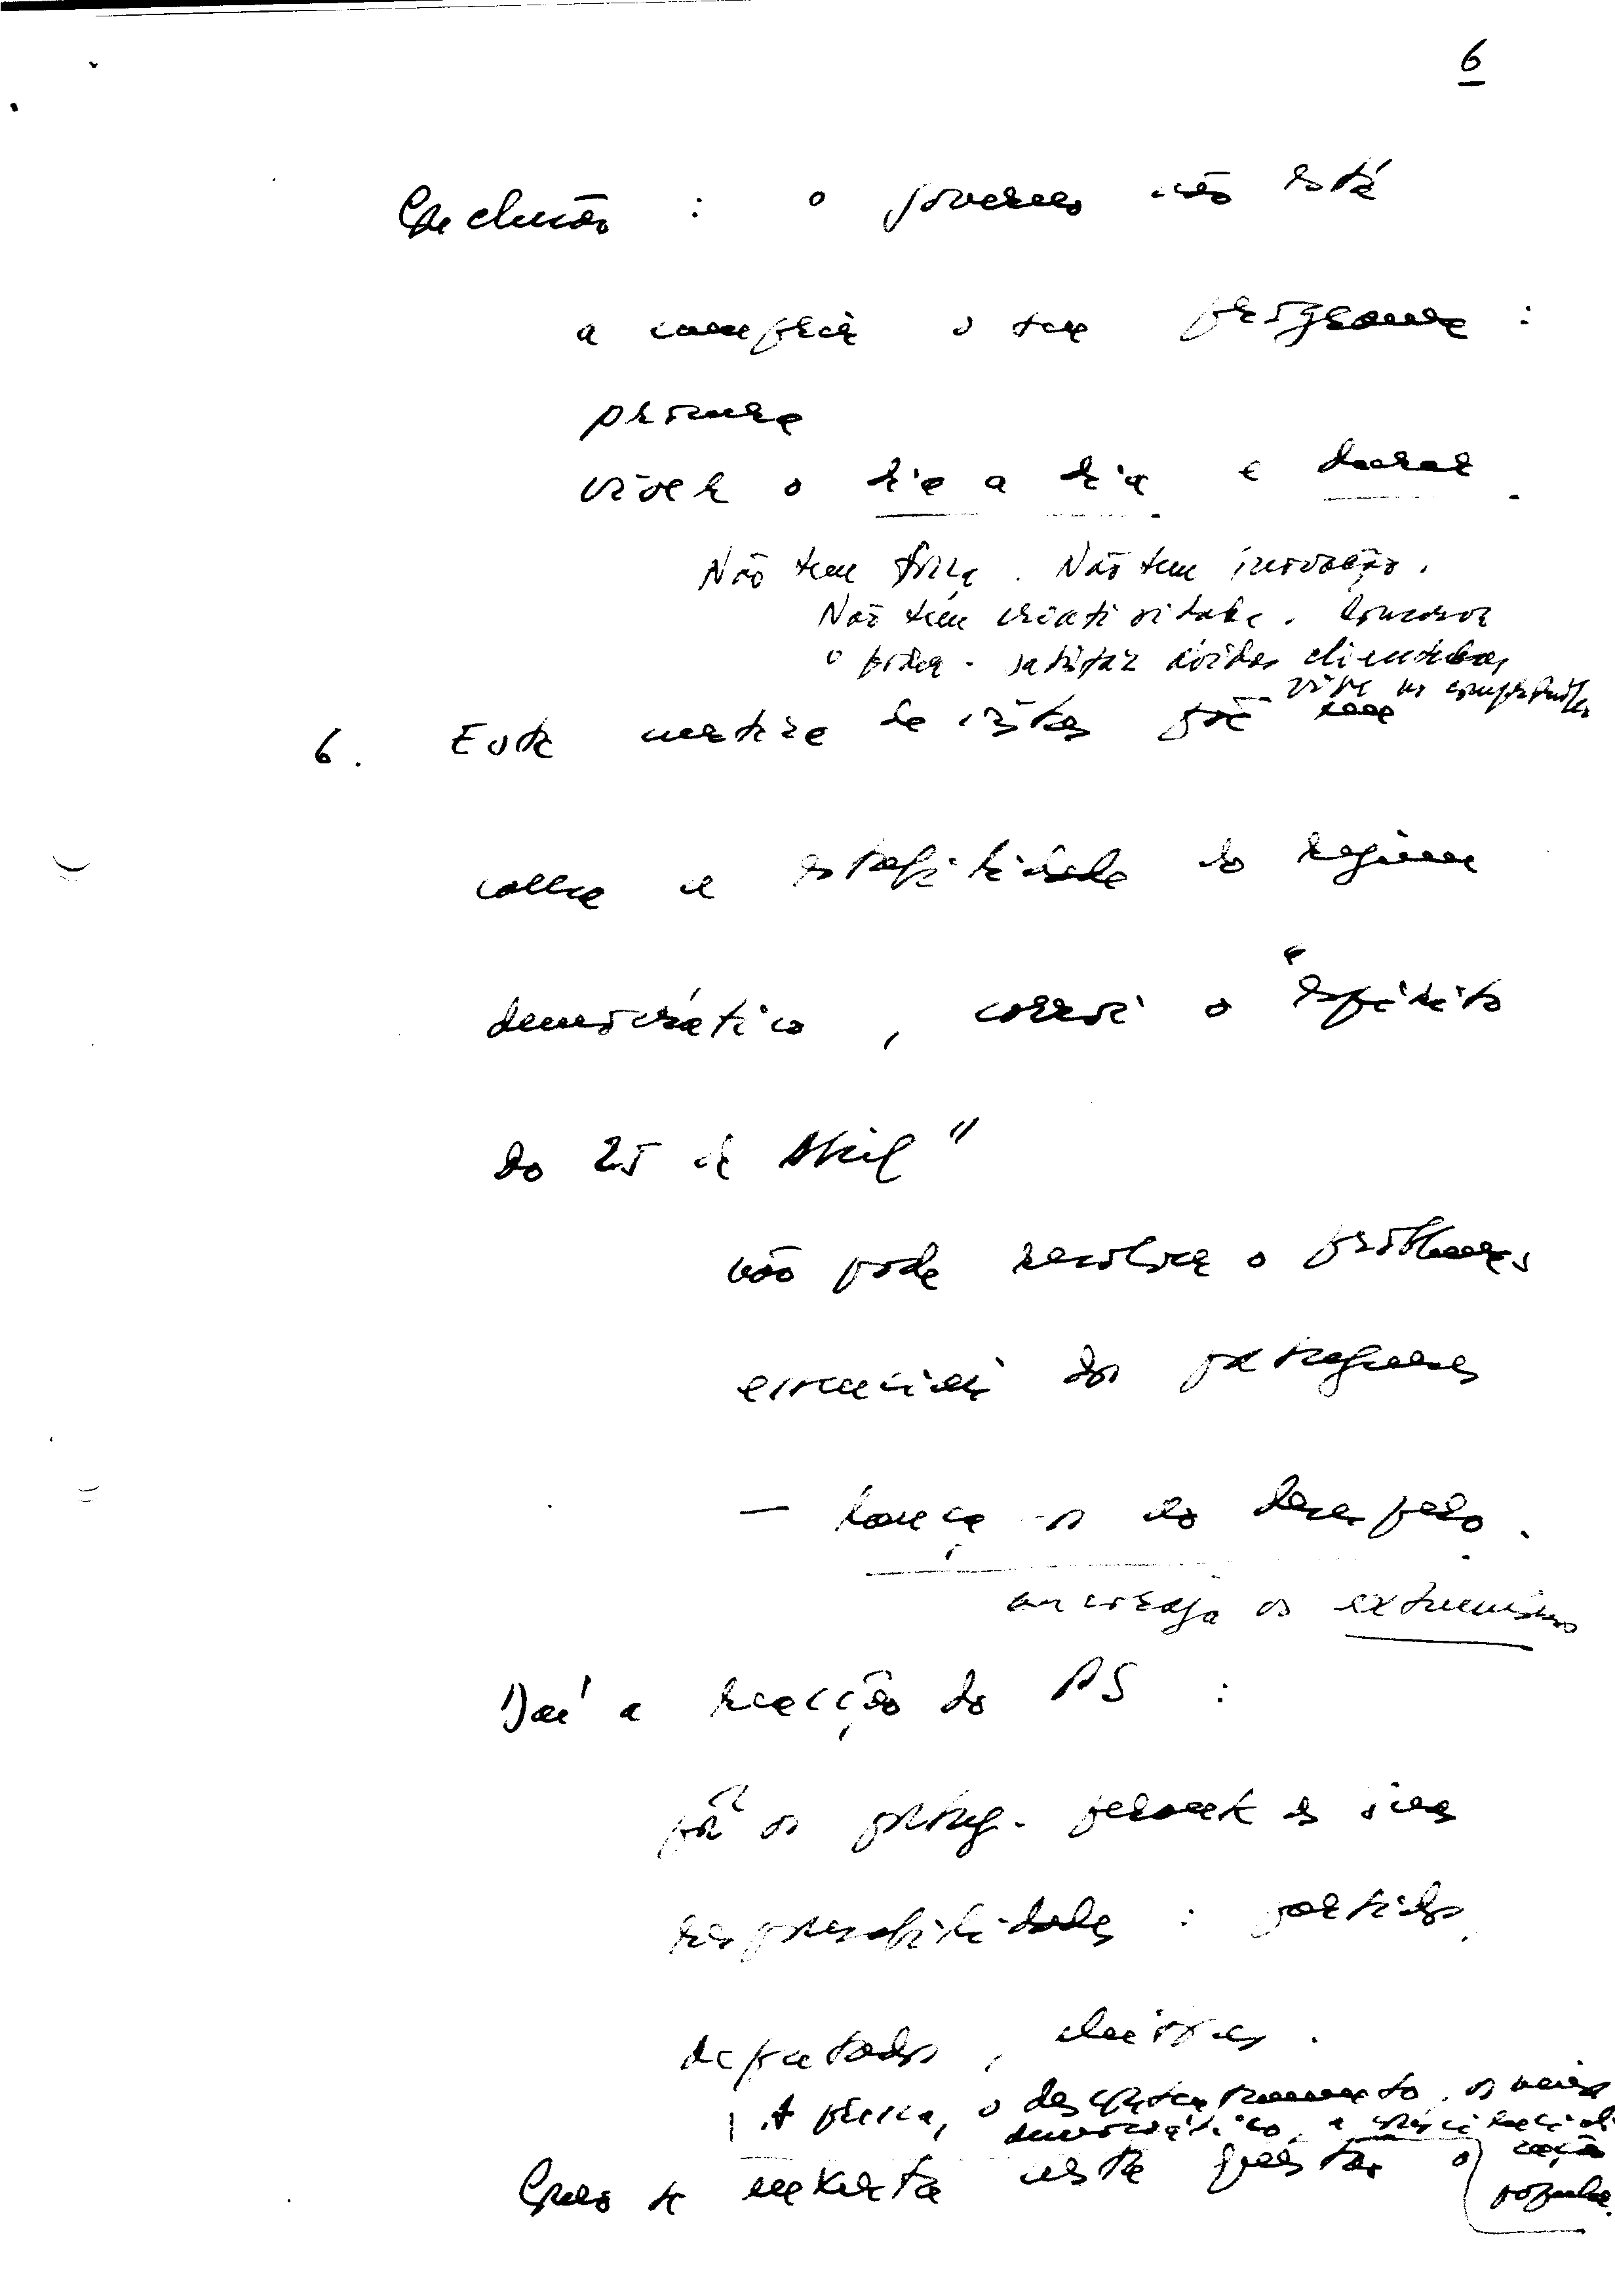 6
Conclusão : o governo não está
a cumprir o seu programa :
procura
viver o dia a dia e durar.
Não tem força. Não tem inovação.
Não tem criatividade. Conserva
o poder - satisfaz ávidas clientelas
vive no
6. Esta matéria de vistas põe em
causa a estabilidade do regime
democrático, corrói o "espírito
do 25 de Abril"
não pode resolver o problemas
essenciais dos portugueses
— lança-os no desespero.
encoraja os extremismos
Daí a reacção do PS :
põr os portug. perante as suas
responsabilidades : partidos,
deputados, eleitores.
A crise, o descontentamento, os meios
democráticos, a
Como se nesta questão o
popular.